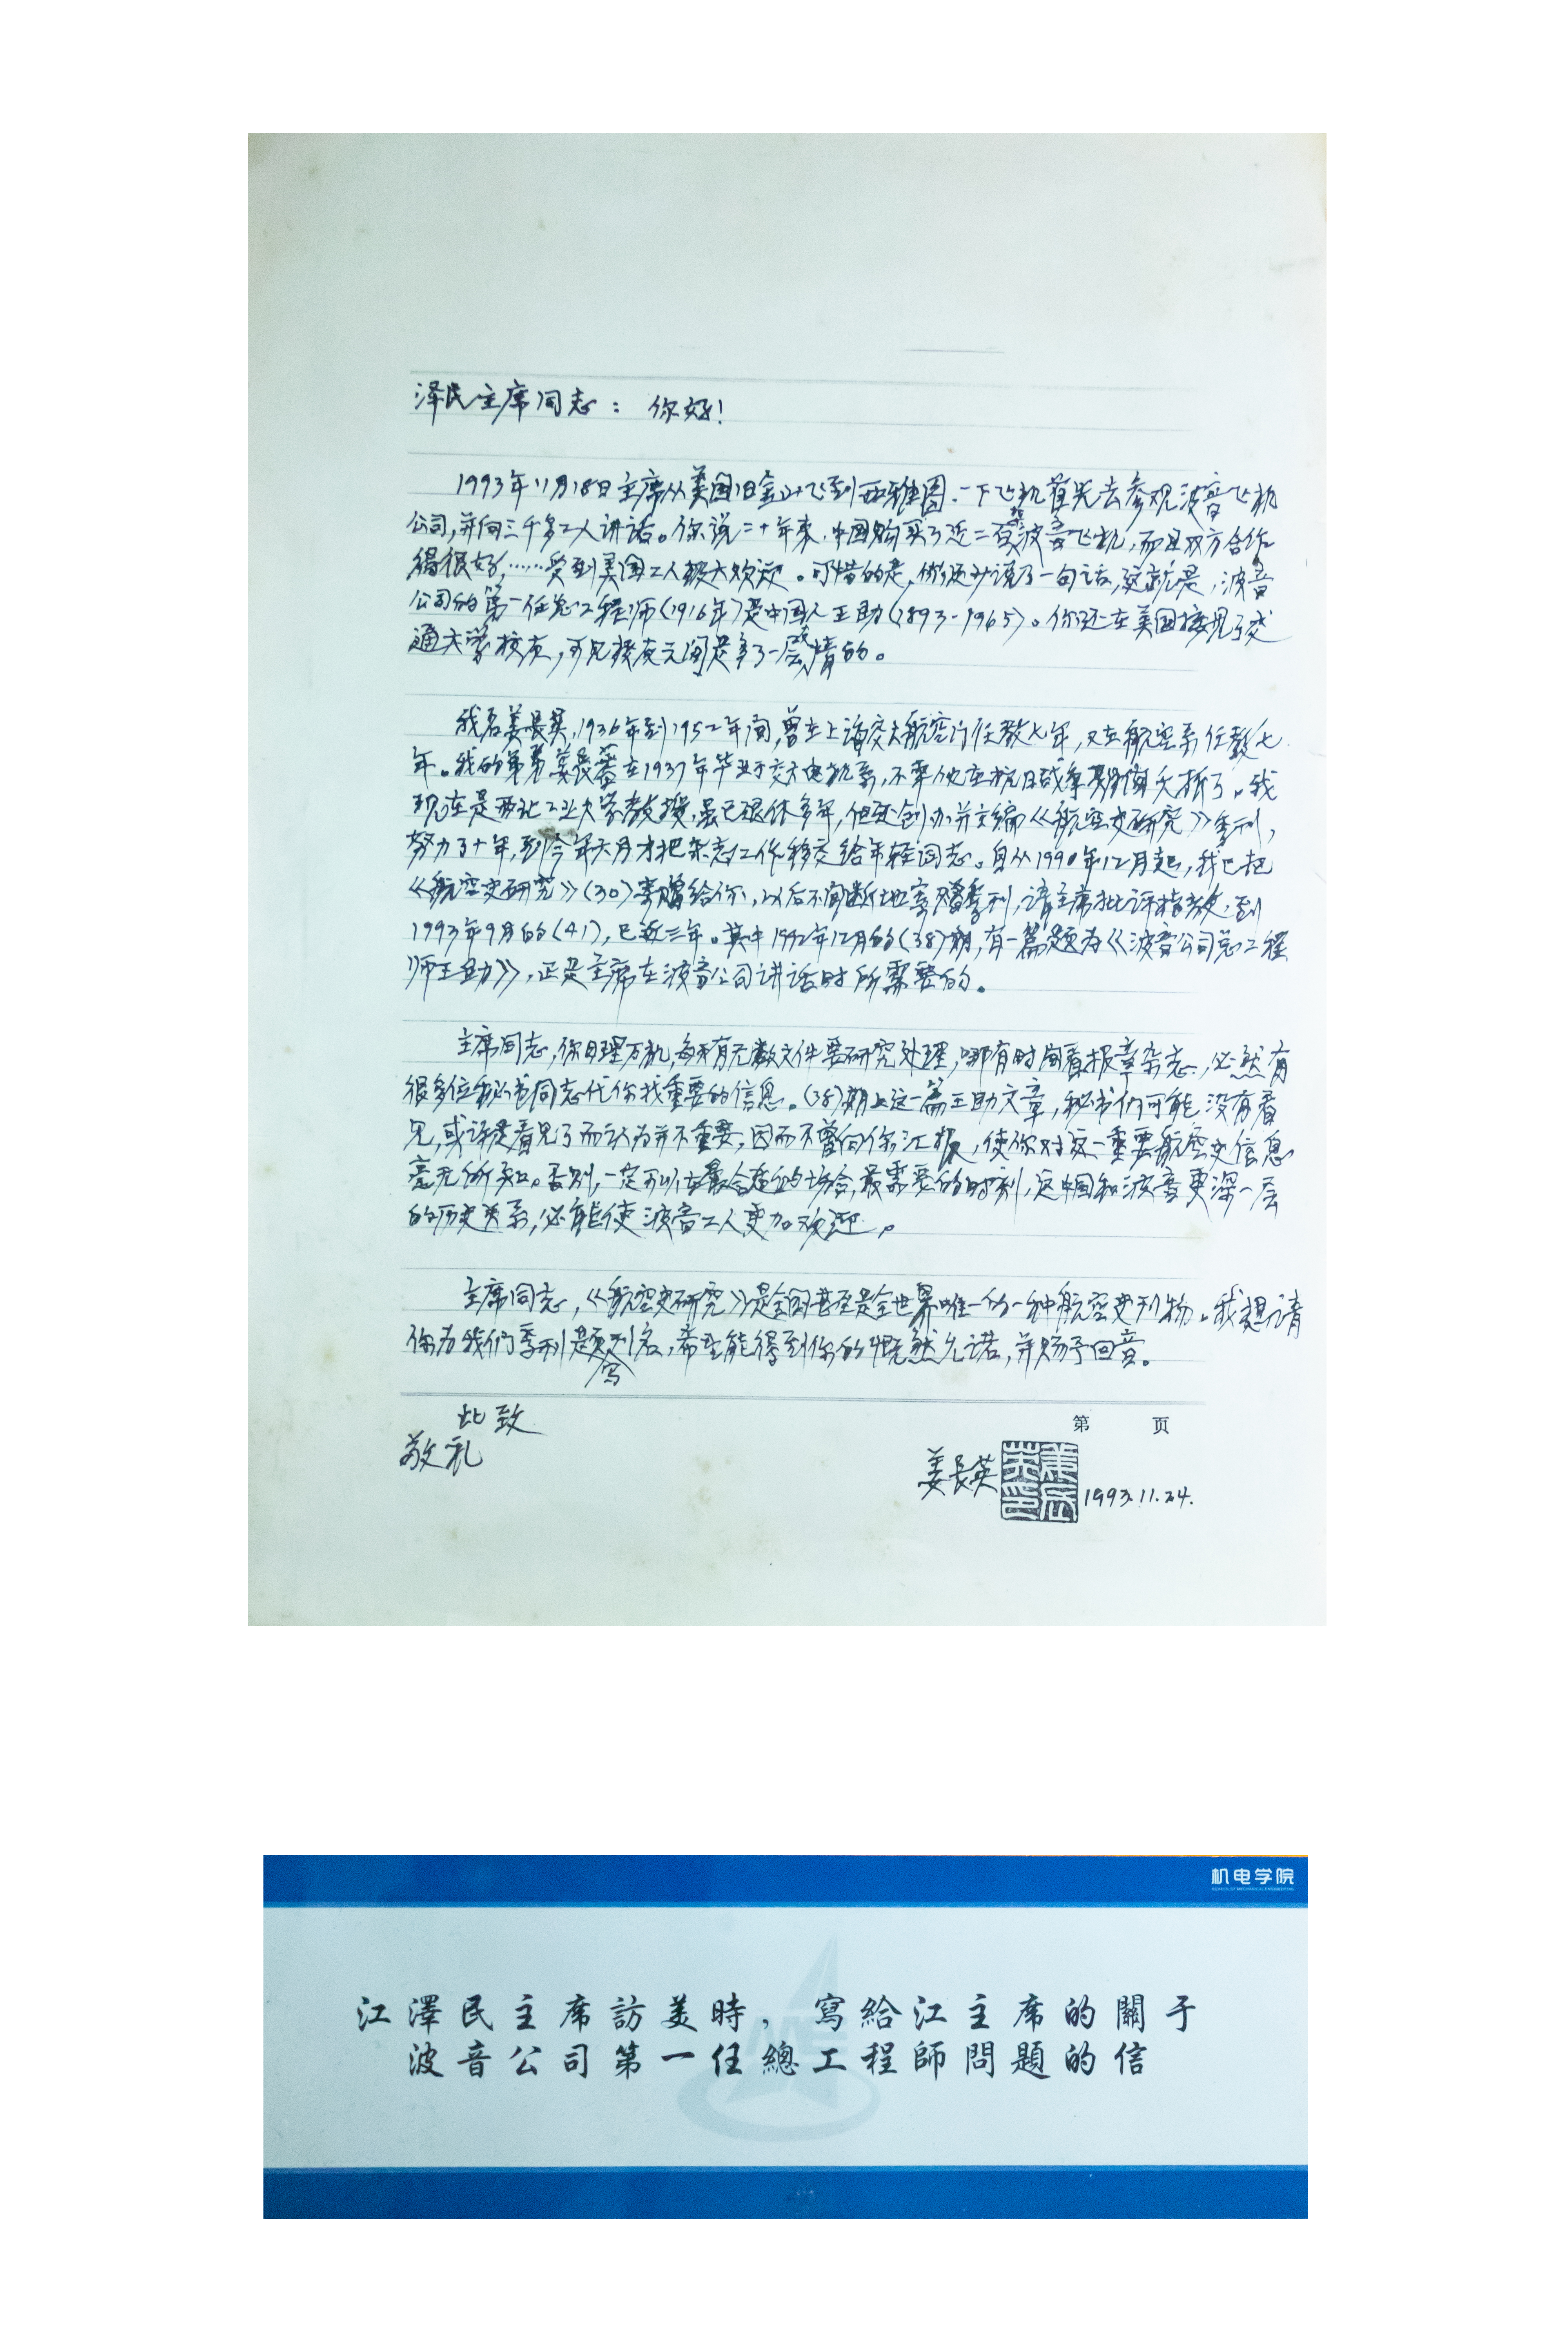 泽民主席同志：你好！
1993年11月18日主席从美国旧金山飞到西雅图，一下飞机首先去参观波音飞机
公司，并向三千多工人讲话。你说二十年来，中国购买了近二百架波音飞机，而且双方合作
得很好，……受到美国工人极大欢迎。可惜的是，你还少说了一句话，这就是，波音
公司的第一任总工程师（1916年）是中国人王助（1893-1965）。你还在美国接见了交
通大学校友，可见校友之间是多了一层感情的。
我名姜长英，1936年到1952年间，曾在上海交大航空门任教七年，又在航空系任教七
年。我的弟弟姜长蓉在1937年毕业于交大电机系，不幸他在抗日战争期间夭折了。我
现在是西北工业大学教授，虽已退休多年，但还创办并主编《航空史研究》季刊，
努力了十年，到今年六月才把杂志工作移交给年轻同志。自从1990年12月起，我已把
《航空史研究》（30）寄赠给你，以后不间断地寄赠季刊，请主席批评指教，到
1993年9月的（41），已近三年。其中1992年12月的（38）期，有一篇题为《波音公司总工程
师王助》，正是主席在波音公司讲话时所需要的。
主席同志，你日理万机，每天有无数文件要研究处理，哪有时间看报章杂志，必然有
很多位秘书同志代你找重要的信息。（38）期上这一篇王助文章，秘书们可能没有看
见，或许是看见了而认为并不重要，因而不曾向你汇报，使你对这一重要航空史信息
毫无所知。否则，一定可以在最合适的场合，最需要的时刻，说中国和波音更深一层
的历史关系，必能使波音工人更加欢迎。
主席同志，《航空史研究》是全国甚至是全世界唯一的一种航空史刊物。我想请
你为我们季刊题写刊名，希望能得到你的慨然允诺，并赐予回音。
此致
敬礼
第 页
姜长英 1993.11.24.
机电学院
江澤民主席訪美時，寫給江主席的關于
波音公司第一任總工程師問題的信